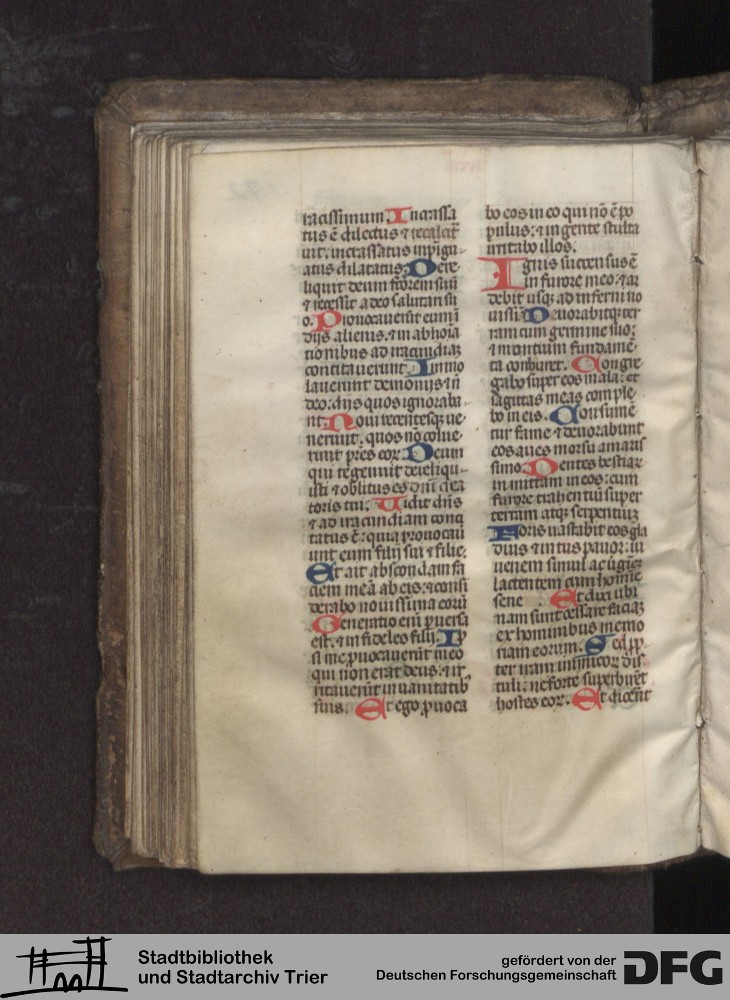 racissimum. Incrassa
tus ē dilectus ⁊ recalcit̄
uit. incrassatus inpīgu-
atus dilatatus. Dere-
liquit deum fc̄orem suū
⁊ recessit a deo salutari su
o. Prouocauerūt eum ī
dijs alienis. ⁊ in abhoīa
tionibus ad iracundiaꝫ
concitauerunt. Immo
lauerunt demonijs ⁊ n̄
deo. dijs quos ignoraba-
nt. Noui recentesqꝫ ue-
nerunt. quos nō colue-
runt pr̄es eoꝝ. Deum
qui te genuit dereliqu-
isti ⁊ oblitus es dn̄i crea
toris tui. Uidit dn̄s
⁊ ad iracundiam conci
tatus ē. quia prouocau
unt eum filij sui ⁊ filie.
Et ait abscondam fa
ciem meā ab eis. ⁊ consi
derabo nouissima eorū
Generatio enī puersa
est. ⁊ infideles filij. Ip
si me prouocauerūt in eo
qui non erat deus. ⁊ ir-
ritauerūt in uanitatib
suis. Et ego prouoca
bo eos in eo qui nō ē po
pulus. ⁊ in gente stulta
irritabo illos.
Ignis succensus ē
in furore meo. ⁊ ar
debit usqꝫ ad inferni no
uissīa. Deuorabitqꝫ ter
ram cum germine suo.
⁊ montium fundamē-
ta comburet. Congre-
gabo super eos mala. et
sagittas meas comple-
bo in eis. Consumē
tur fame ⁊ deuorabunt
eos aues morsu amaris
simo. Dentes bestiaꝝ
inmittam in eos. cum
furore trahentiū super
terram atqꝫ serpentiuꝫ
Foris uastabit eos gla
dius ⁊ intus pauor. iu
uenem simul ac ūgīeꝫ
lactentem cum homīe
sene. Et dixi ubi
nam sunt cessare faciaꝫ
ex hominibus memo
riam eorum. Sed pp
ter iram inimicoꝝ dis-
tuli. ne forte superbirēt
hostes eoꝝ. Et dicent
Stadtbibliothek
und Stadtarchiv Trier
gefördert von der
Deutschen Forschungsgemeinschaft
DFG